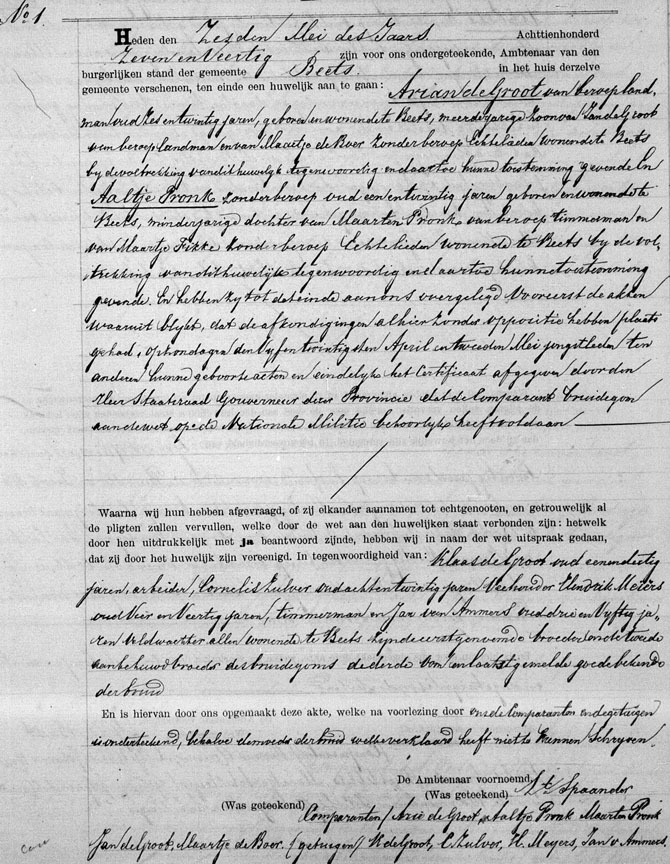 No 1.
Heden den Zesden Mei des Jaars Achttienhonderd
Zeven en Veertig zijn voor ons ondergeteekende, Ambtenaar van den
burgerlijken stand der gemeente Beets in het huis derzelve
gemeente verschenen, ten einde een huwelijk aan te gaan: Arian de Groot van beroep land,
man oud Zes en twintig jaren, geboren en wonende te Beets, meerderjarige Zoon van Jan de Groot
van beroep landman en van Maartje de Boer zonder beroep Echtelieden wonende te Beets
by de voltrekking van dit huwelijk tegenwoordig en daartoe hunne toestemming gevende En
Aaltje Pronk zonder beroep oud een en twintig jaren geboren en wonende te
Beets, minderjarige dochter van Maarten Pronk van beroep timmerman en
van Maartje Fikke zonder beroep Echtelieden wonende te Beets by de vol,
trekking van dit huwelijk tegenwoordig en daartoe hunne toestemming
gevende. En hebben zy tot dat einde aan ons overgelegd Vooreerst de akten
waaruit blykt, dat de afkondigingen alhier zonder oppositie hebben plaats
gehad, op zondagen den Vyf en twintigsten April en tweeden Mei jongstleden ten
anderen hunne geboorteacten en eindelyk het Certificaat afgegeven door den
Heer Staatsraad Gouverneur dezer Provincie dat de Comparant bruidegom
aan de wet op de Nationale Militie behoorlyk heeft voldaan
Waarna wij hun hebben afgevraagd, of zij elkander aannamen tot echtgenooten, en getrouwelijk al
de pligten zullen vervullen, welke door de wet aan den huwelijken staat verbonden zijn: hetwelk
door hen uitdrukkelijk met ja beantwoord zijnde, hebben wij in naam der wet uitspraak gedaan,
dat zij door het huwelijk zijn vereenigd. In tegenwoordigheid van: Klaas de Groot oud een en dertig
jaren, arbeider, Cornelis Zulver oud acht en twintig jaren Veehouder Hendrik Meijers
oud Vier en Veertig jaren, timmerman en Jan van Ammers oud drie en Vyftig ja,
ren veldwachter allen wonende te Beets zynde eerstgenoemde broeder en de tweede
aanbehuwd broeder des bruidegoms de derde Oom en laatstgemelde goede bekende
der bruid
En is hiervan door ons opgemaakt deze akte, welke na voorlezing door ons de Comparanten en de getuigen
is onderteekend, behalve de moeder der bruid welke verklaard heeft niet te kunnen Schryven.
De Ambtenaar voornoemd,
(Was geteekend) Spaander
(Was geteekend) Comparanten / Arie de Groot, Aaltje Pronk Maarten Pronk
Jan de Groot, Maartje de Boer. (getuigen) K de Groot, C Zulver, H. Meyers, Jan v. Ammers